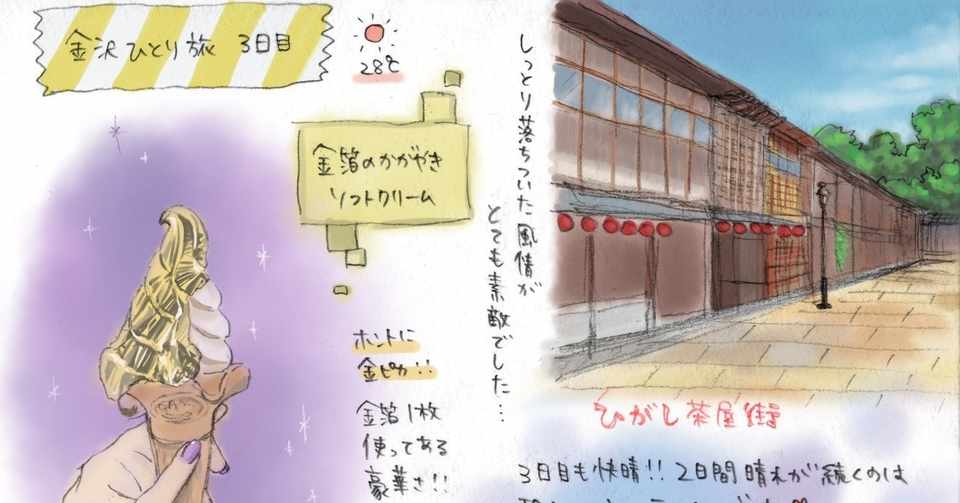 金沢ひとり旅 3日目
28℃
金箔のかがやき
ソフトクリーム
ホントに
金ピカ!!
金箔1枚
使ってある
豪華さ!!
しっとり落ちついた風情が
とても素敵でした…
ひがし茶屋街
3日目も快晴!! 2日間晴れが続くのは